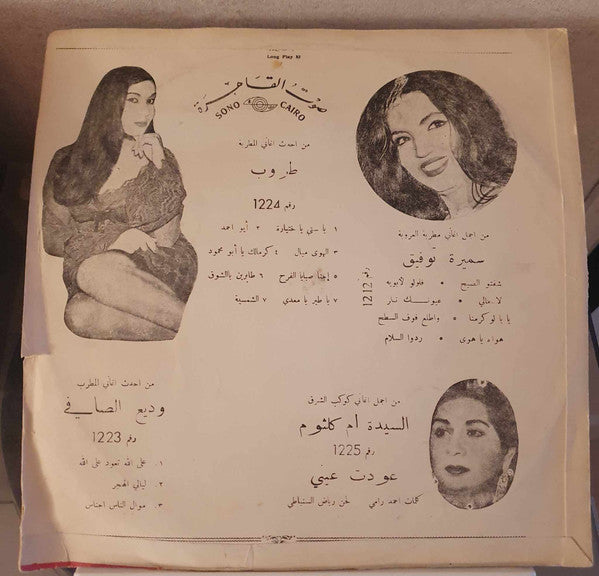 Long Play
صوت القاهرة
SONO CAIRO
من احدث اغاني المطربة
طروب
رقم 1224
١ يا ستي يا ختيارة ٢ أبو احمد
٣ الهوى ميال ٤ كرمالك يا أبو محمود
٥ إجينا صبايا الفرح ٦ طايرين بالشوق
٧ يا طير يا معدي ٧ الشمسية
من اجمل اغاني مطربة العروبة
سميرة توفيق
رقم 1212
شفتو الصبح • قلولو لأبويه
لا مالي • عيونك نار
يا با لو كرمنا • واطلع فوف السطح
هواه يا هوى • ردوا السلام
من احدث اغاني المطرب
وديع الصافي
رقم 1223
١. على الله تعود على الله
٢. ليالي الهجر
٣. موال الناس اجناس
من اجمل اغاني كوكب الشرق
السيدة ام كلثوم
رقم 1225
عودت عيني
كلمات احمد رامي لحن رياض السنباطي